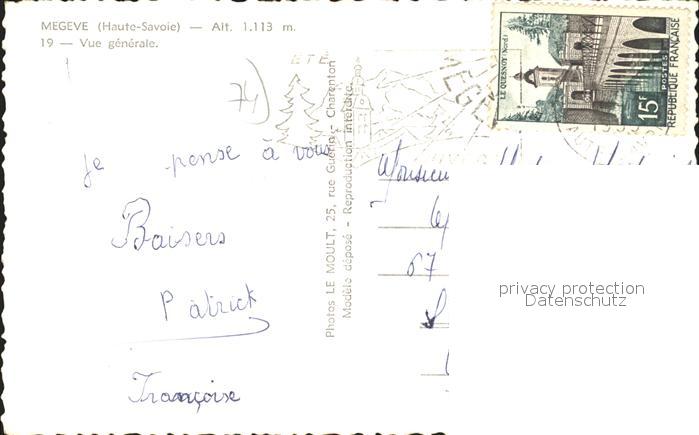 MEGEVE (Haute-Savoie) — Alt. 1.113 m.
19 — Vue générale.
74)
ETE
MEGEVE
LE QUESNOY (Nord)
15F
POSTES
REPUBLIQUE FRANÇAISE
Je pense à vous
Baisers
Patrick
Françoise
Photos LE MOULT, 25, rue Guérin - Charenton
Modèle déposé - Reproduction interdite
Monsieur
67
privacy protection
Datenschutz